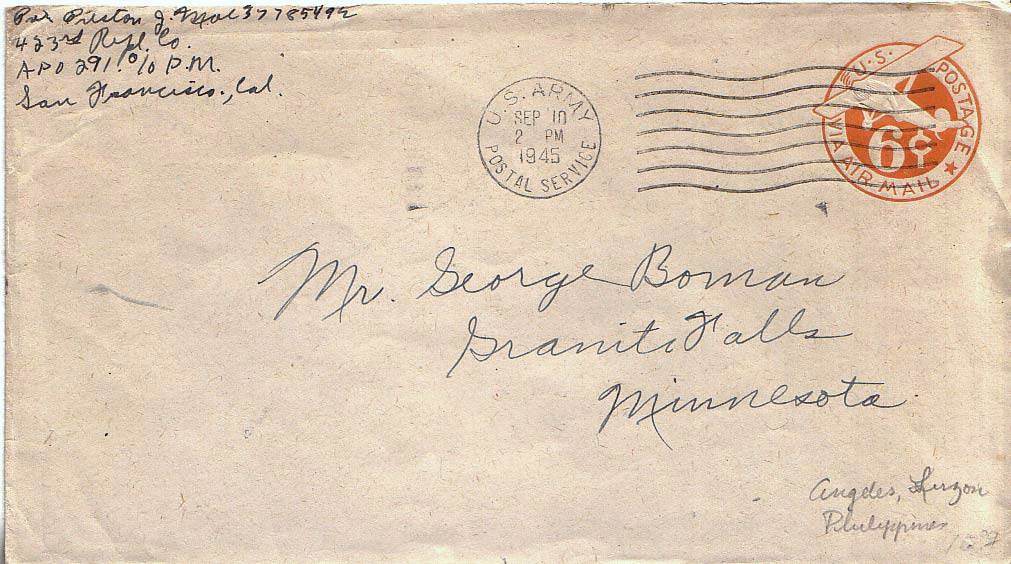 423rd Repl. Co.
APO 291 % P.M.
San Francisco., Cal.
U.S. ARMY
SEP 10
2 PM
1945
POSTAL SERVICE
U.S. POSTAGE
6¢
VIA AIR MAIL
Mr. George Boman
Granite Falls
Minnesota
Angeles, Luzon
Philippines